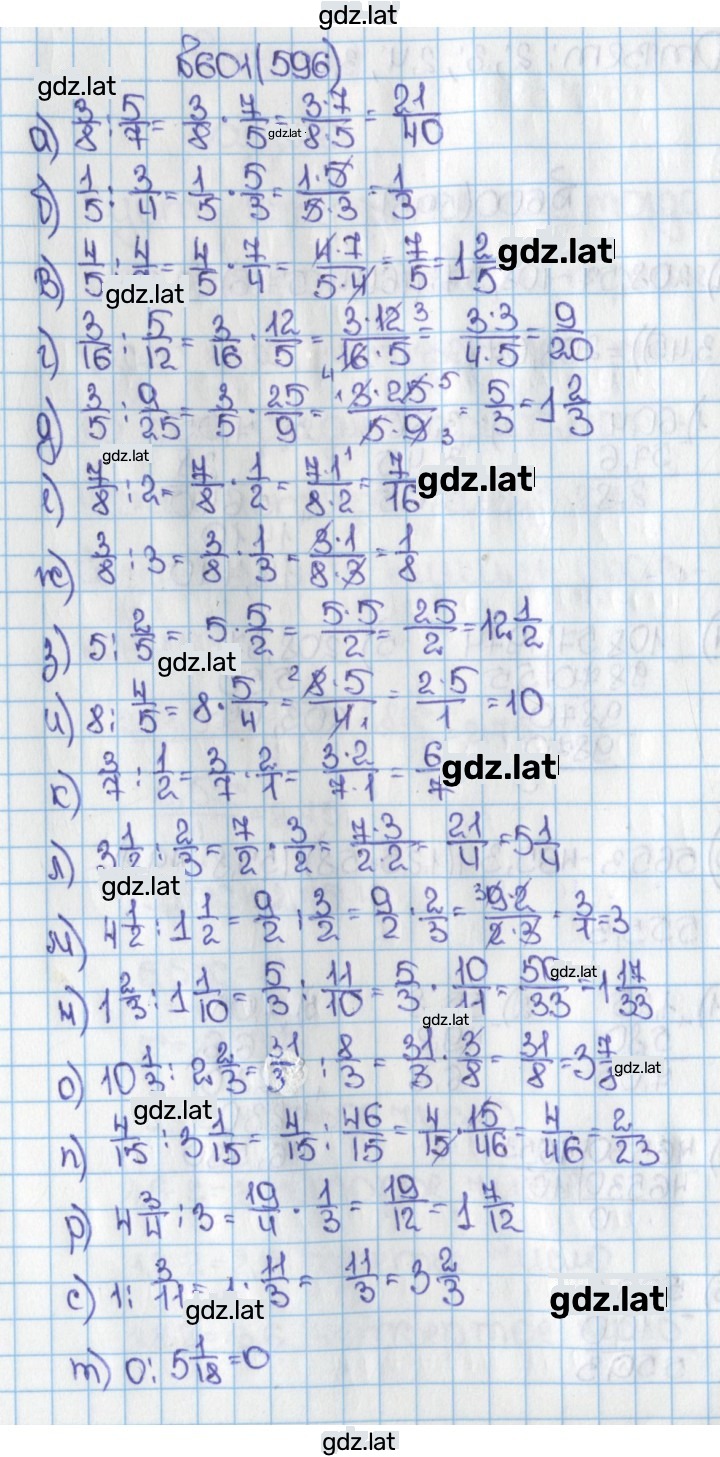 gdz.lat
в601(596)
gdz.lat
а) 3/8 : 5/7 = 3/8 · 7/5 = 3·7/8·5 = 21/40
gdz.lat
б) 1/5 : 3/4 = 1/5 · 5/3 = 1·5/5·3 = 1/3
в) 4/5 : 4/ = 4/5 · 7/4 = 4·7/5·4 = 7/5 = 1 2/5
gdz.lat
gdz.lat
г) 3/16 : 5/12 = 3/16 · 12/5 = 3·12 3/4 16·5 = 3·3/4·5 = 9/20
д) 3/5 : 9/25 = 3/5 · 25/9 = 1 3·25 5/5·9 3 = 5/3 = 1 2/3
gdz.lat
е) 7/8 : 2 = 7/8 · 1/2 = 7·1/8·2 = 7/16
gdz.lat
ж) 3/8 : 3 = 3/8 · 1/3 = 3·1/8·3 = 1/8
з) 5 : 2/5 = 5 · 5/2 = 5·5/2 = 25/2 = 12 1/2
gdz.lat
и) 8 : 4/5 = 8 · 5/4 = 2 8·5/4 1 = 2·5/1 = 10
к) 3/7 : 1/2 = 3/7 · 2/1 = 3·2/7·1 = 6/7
gdz.lat
л) 3 1/2 : 2/3 = 7/2 · 3/2 = 7·3/2·2 = 21/4 = 5 1/4
gdz.lat
м) 4 1/2 : 1 1/2 = 9/2 : 3/2 = 9/2 · 2/3 = 3 9·2/2·3 = 3/1 = 3
н) 1 2/3 : 1 1/10 = 5/3 : 11/10 = 5/3 · 10/11 = 50/33 = 1 17/33
gdz.lat
gdz.lat
о) 10 1/3 : 2 2/3 = 31/3 : 8/3 = 31/3 · 3/8 = 31/8 = 3 7/8
gdz.lat
gdz.lat
п) 4/15 : 3 1/15 = 4/15 : 46/15 = 4/15 · 15/46 = 4/46 = 2/23
р) 4 3/4 : 3 = 19/4 · 1/3 = 19/12 = 1 7/12
с) 1 : 3/11 = 1 · 11/3 = 11/3 = 3 2/3
gdz.lat
gdz.lat
т) 0 : 5 1/18 = 0
gdz.lat